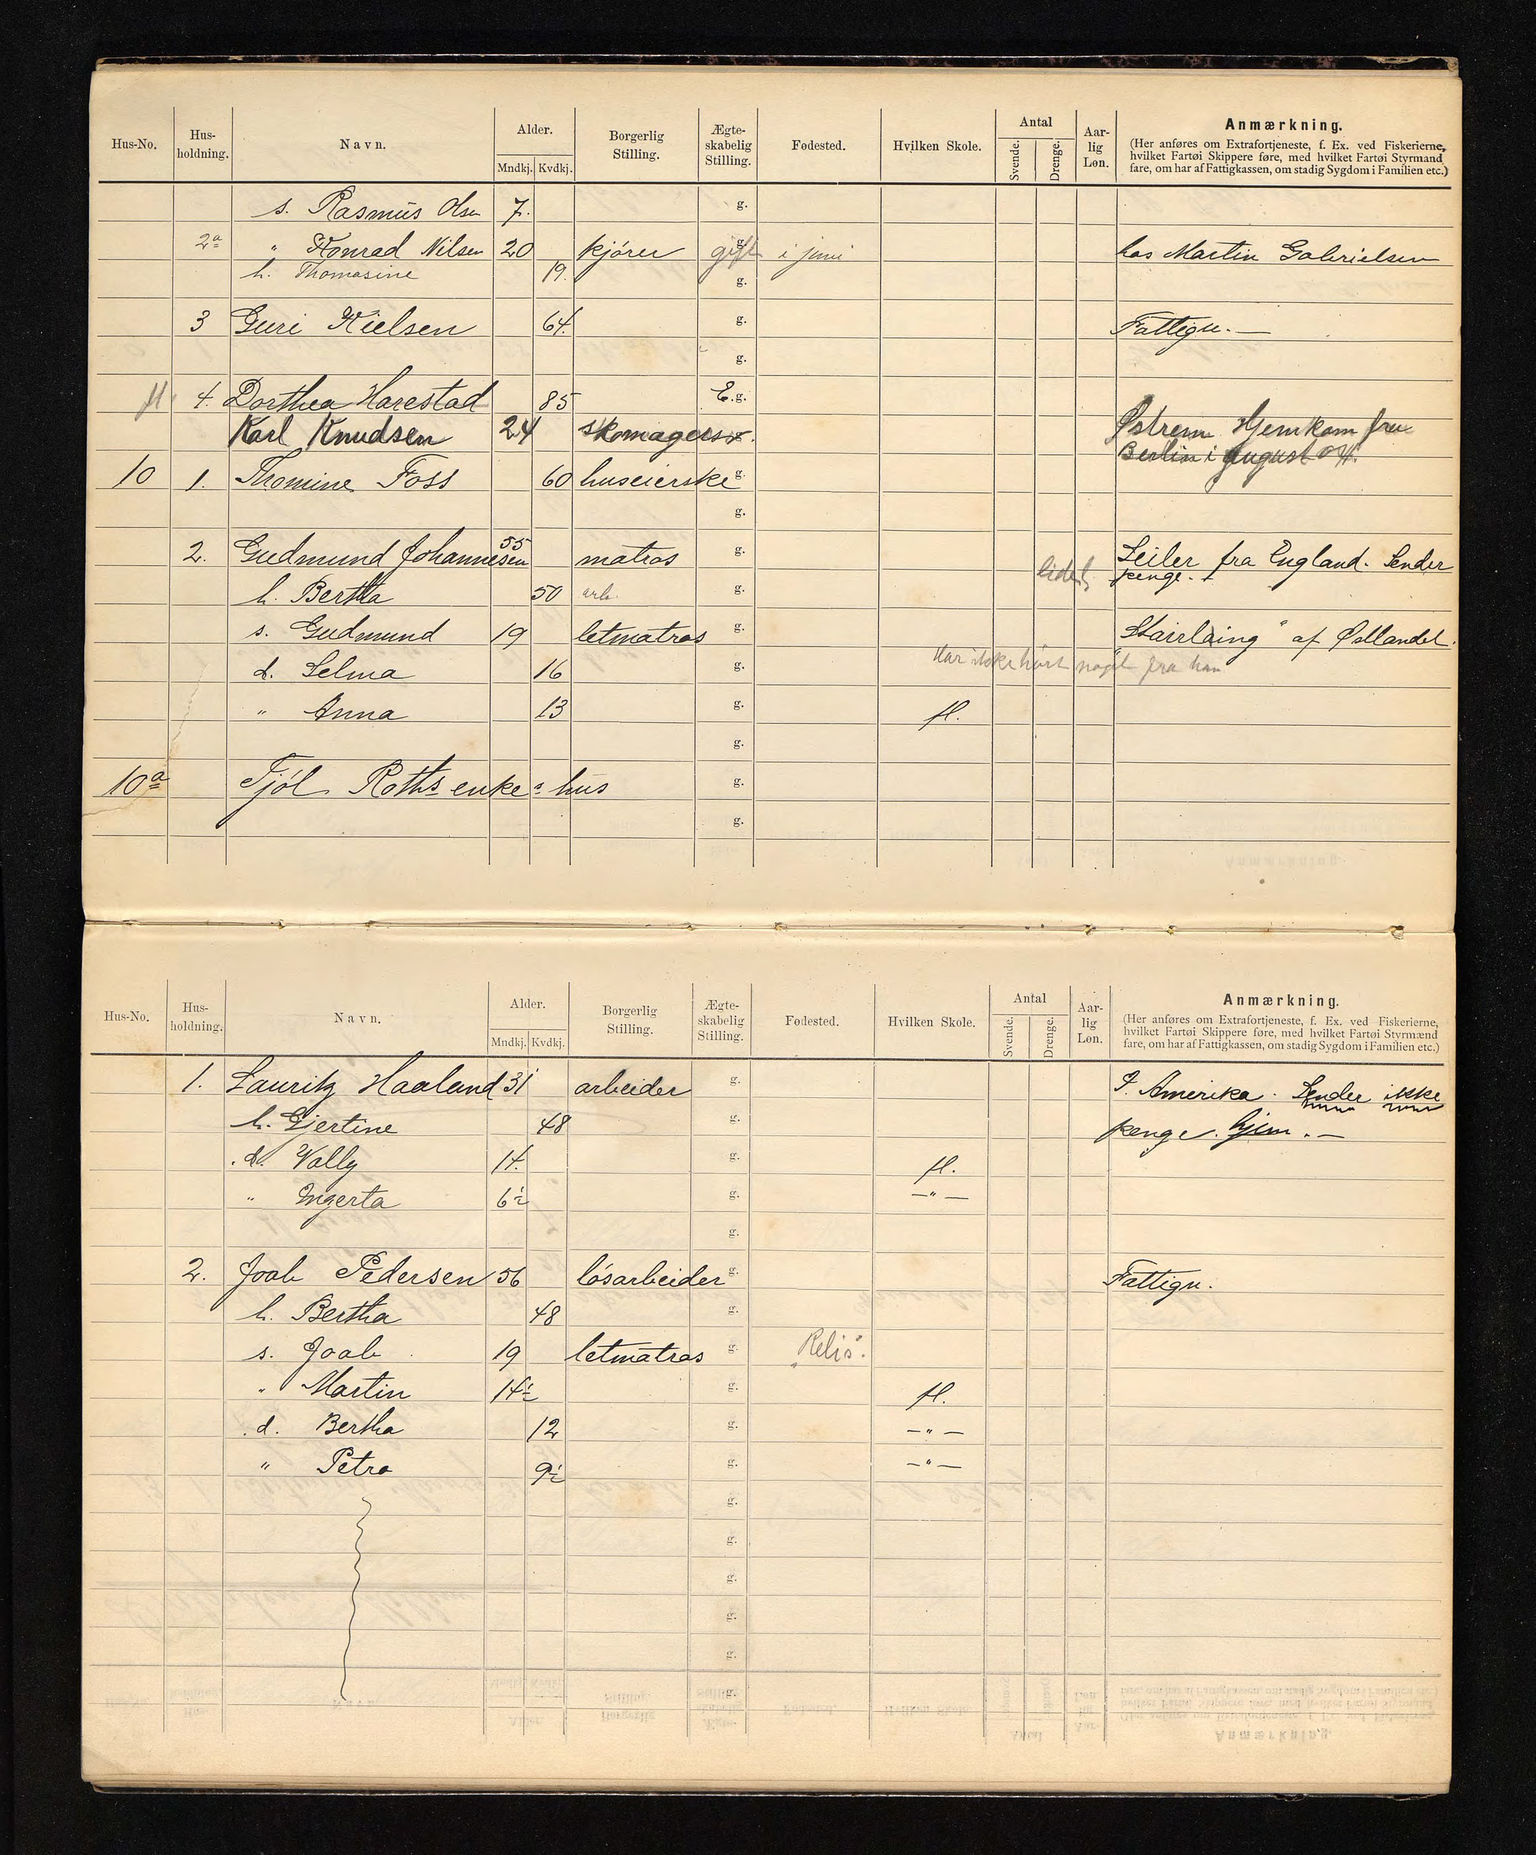 Hus-No. Hus-holdning. Navn. Alder. Mndkj. Kvdkj. Borgerlig Stilling. Ægte-skabelig Stilling. Fødested. Hvilken Skole. Antal Svende. Drenge. Aar-lig Løn. Anmærkning.
(Her anføres om Extrafortjeneste, f. Ex. ved Fiskerierne,
hvilket Fartøi Skippere føre, med hvilket Fartøi Styrmand
fare, om har af Fattigkassen, om stadig Sygdom i Familien etc.)
s. Rasmus Olsen 7. g.
2a " Konrad Nilsen 20 kjører gift i juni hos Martin Gabrielsen
h. Thomasine 19. g.
3 Guri Nielsen 64. g. Fattigu. —
g.
fl. 4. Dorthea Harestad 85 E. g.
Karl Knudsen 24 skomagersv. Østrem Hjemkom fra
Berlin i August 04.
10 1. Thomine Foss 60 huseierske g.
g.
2. Gudmund Johannesen 55 matros g. Seiler fra England. Sender
penge.
h. Bertha 50 arb. g.
s. Gudmund 19 letmatros g. af Østlandet.
Har ikke hørt noget fra han
d. Selma 16 g.
" Anna 13 g. fl.
g.
10a Tjøl Roths enkes hus g.
g.
Hus-No. Hus-holdning. Navn. Alder. Mndkj. Kvdkj. Borgerlig Stilling. Ægte-skabelig Stilling. Fødested. Hvilken Skole. Antal Svende. Drenge. Aar-lig Løn. Anmærkning.
(Her anføres om Extrafortjeneste, f. Ex. ved Fiskerierne,
hvilket Fartøi Skippere føre, med hvilket Fartøi Styrmænd
fare, om har af Fattigkassen, om stadig Sygdom i Familien etc.)
1. Lauritz Haaland 31 arbeider g. I Amerika. Sender ikke
h. Gjertine 48 g. penge hjem. —
d. Vally 14. g. fl.
" Ingerta 6½ g. — " —
g.
2. Joab Pedersen 56 løsarbeider g. Fattigu.
h. Bertha 48 g.
s. Joab 19 letmatros g. "Relis".
" Martin 14½ g. fl.
d. Bertha 12 g. — " —
" Petra 9½ g. — " —
g.
g.
g.
g.
g.
g.